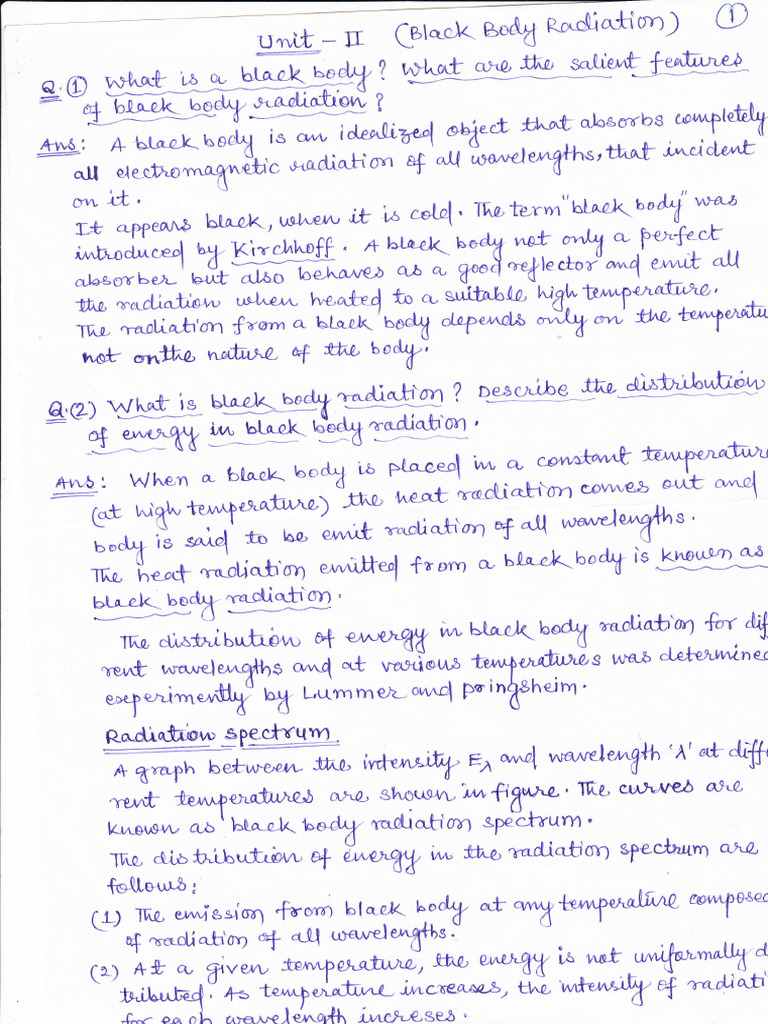 Unit - II (Black Body Radiation) 1
Q.(1) What is a black body? What are the salient features
of black body radiation?
Ans: A black body is an idealized object that absorbs completely
all electromagnetic radiation of all wavelengths, that incident
on it.
It appears black, when it is cold. The term "black body" was
introduced by Kirchhoff. A black body not only a perfect
absorber but also behaves as a good reflector and emit all
the radiation when heated to a suitable high temperature.
The radiation from a black body depends only on the temperatu
not on the nature of the body.
Q.(2) What is black body radiation? Describe the distribution
of energy in black body radiation.
Ans: When a black body is placed in a constant temperature
(at high temperature) the heat radiation comes out and
body is said to be emit radiation of all wavelengths.
The heat radiation emitted from a black body is known as
black body radiation.
The distribution of energy in black body radiation for diff
rent wavelengths and at various temperatures was determined
experimently by Lummer and pringsheim.
Radiation spectrum.
A graph between the intensity Eλ and wavelength 'λ' at diffe
rent temperatures are shown in figure. The curves are
known as black body radiation spectrum.
The distribution of energy in the radiation spectrum are
follows:
(1) The emission from black body at any temperature composed
of radiation of all wavelengths.
(2) At a given temperature, the energy is not uniformally d
tributed. As temperature increases, the intensity of radiati
for each wavelength increses.